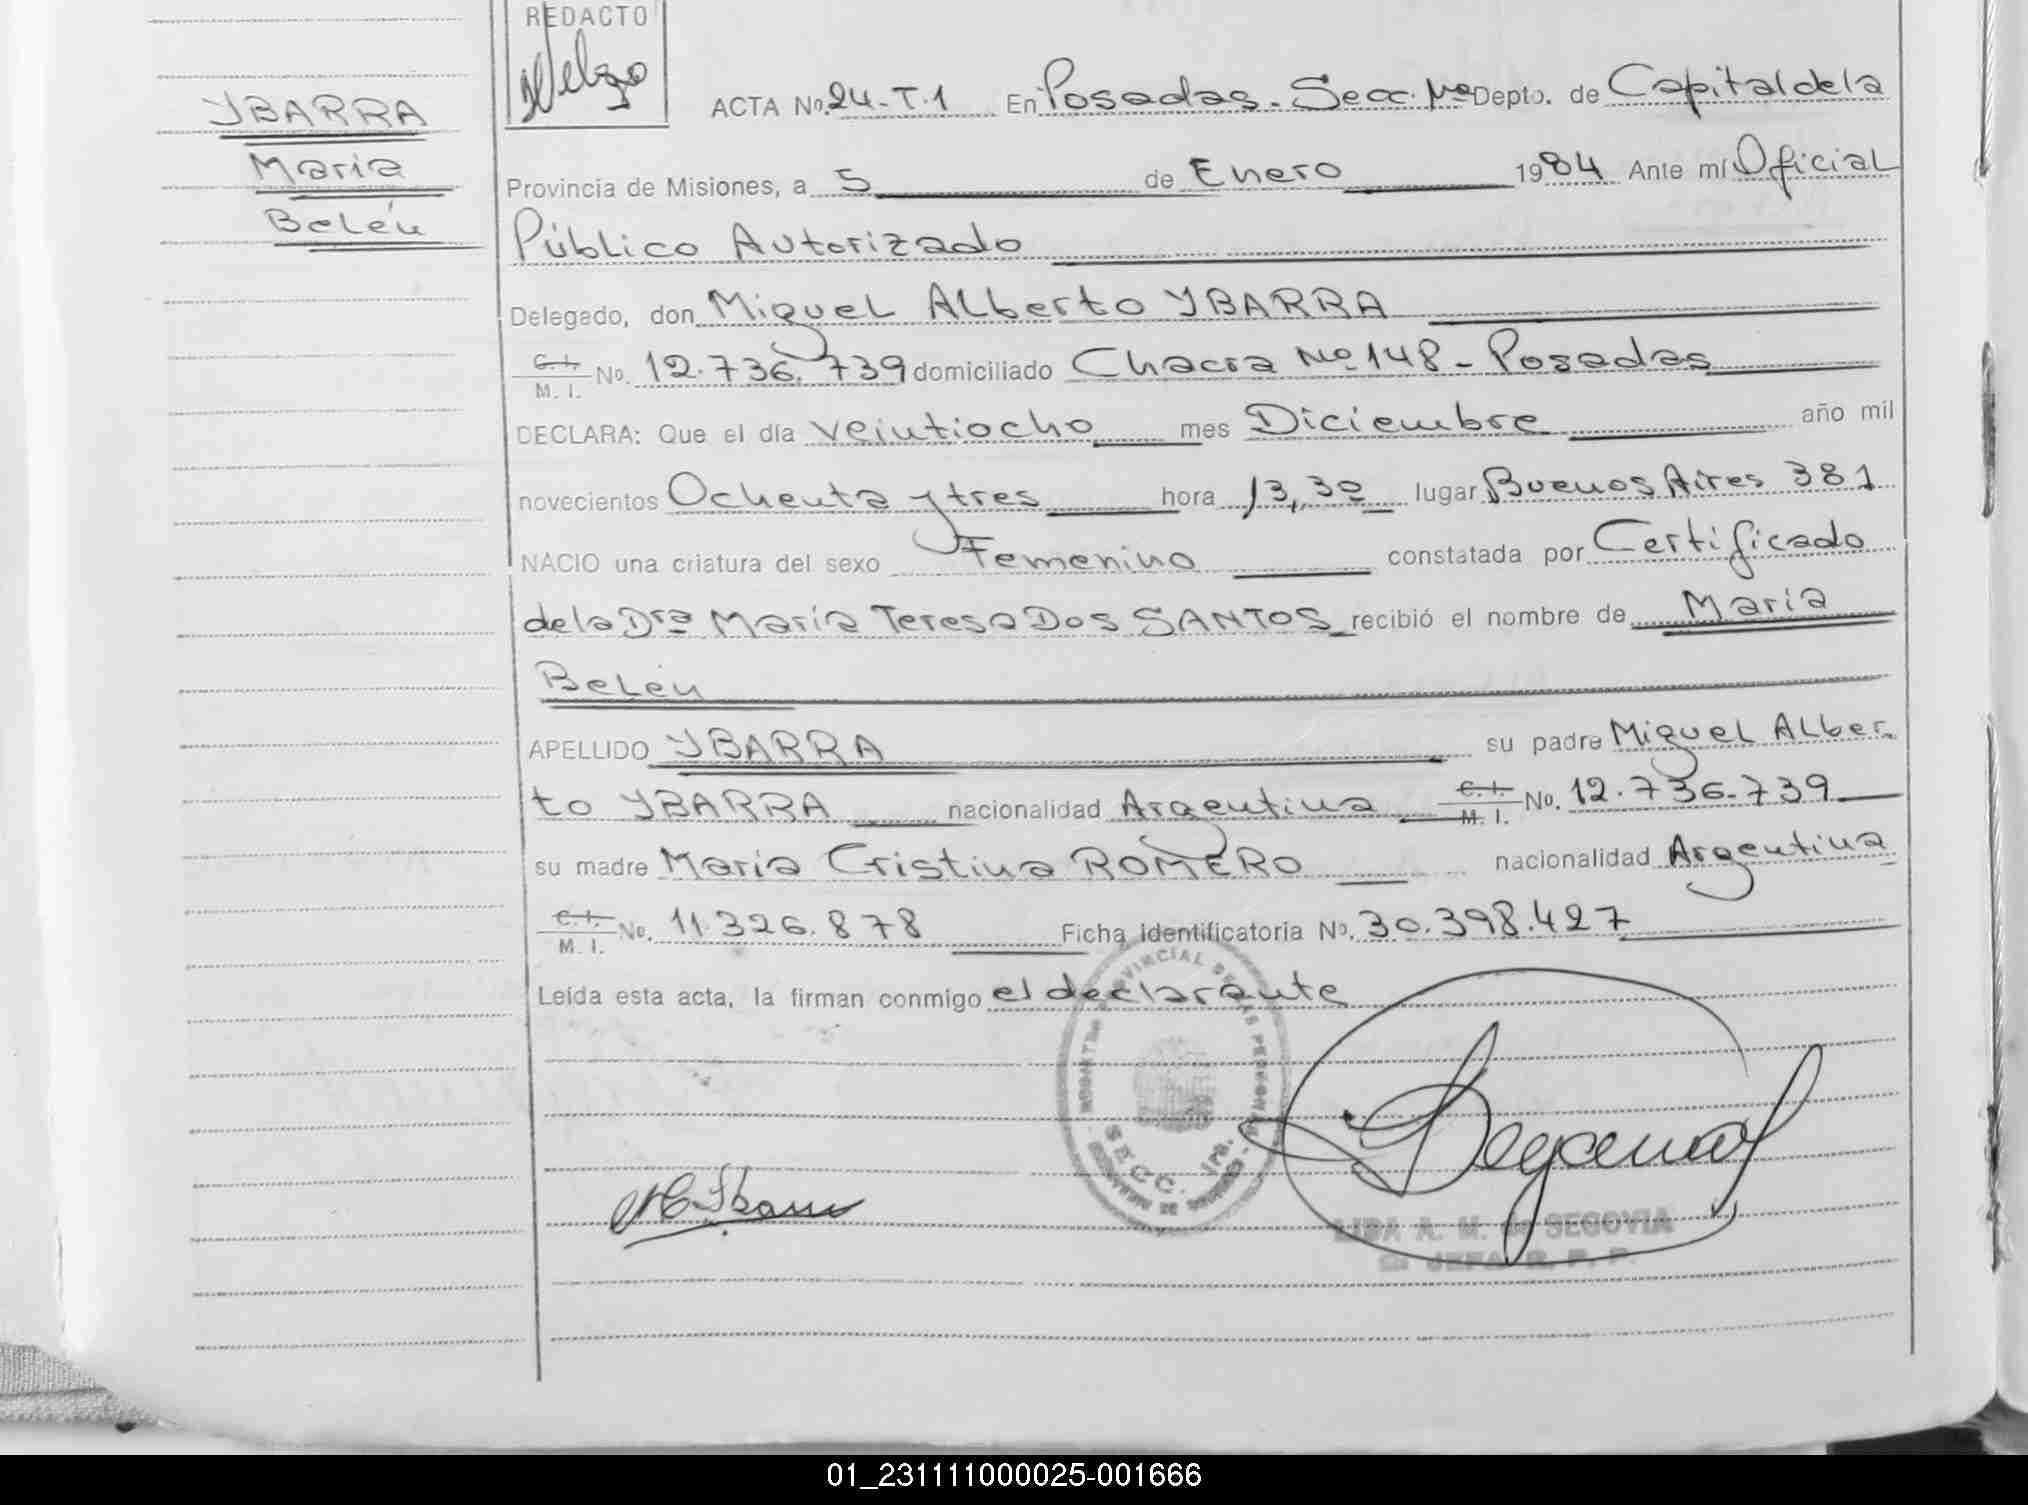 REDACTO
YBARRA
María
Belén
ACTA No. 24-T.1 En Posadas. Secc. 1ra Depto. de Capital de la
Provincia de Misiones, a 5 de Enero 1984 Ante mí Oficial
Público Autorizado
Delegado, don Miguel Alberto YBARRA
C. I. M. I. No. 12.736.739 domiciliado Chacra No 148 - Posadas
DECLARA: Que el día veintiocho mes Diciembre año mil
novecientos Ochenta y tres hora 13,30 lugar Buenos Aires 381
NACIO una criatura del sexo Femenino constatada por Certificado
de la Dra María Teresa Dos SANTOS recibió el nombre de María
Belén
APELLIDO YBARRA su padre Miguel Alber
to YBARRA nacionalidad Argentina C. I. M. I. No. 12.736.739
su madre María Cristina ROMERO nacionalidad Argentina
C. I. M. I. No. 11.326.878 Ficha Identificatoria No. 30.398.427
Leída esta acta, la firman conmigo el declarante
PROVINCIAL DE LAS PERSONAS
SECC. 1ra.
LIDA A. M. de SEGOVIA
JEFA R. P. P.
01_231111000025-001666